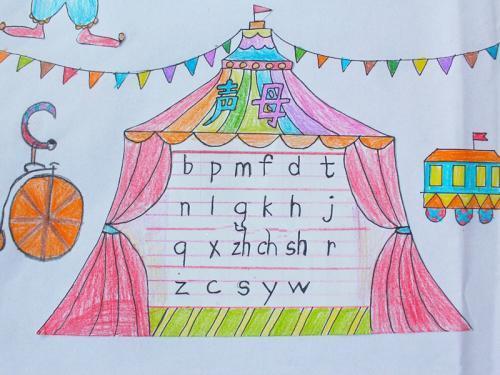 声母
b p m f d t
n l g k h j
q x zh ch sh r
z c s y w